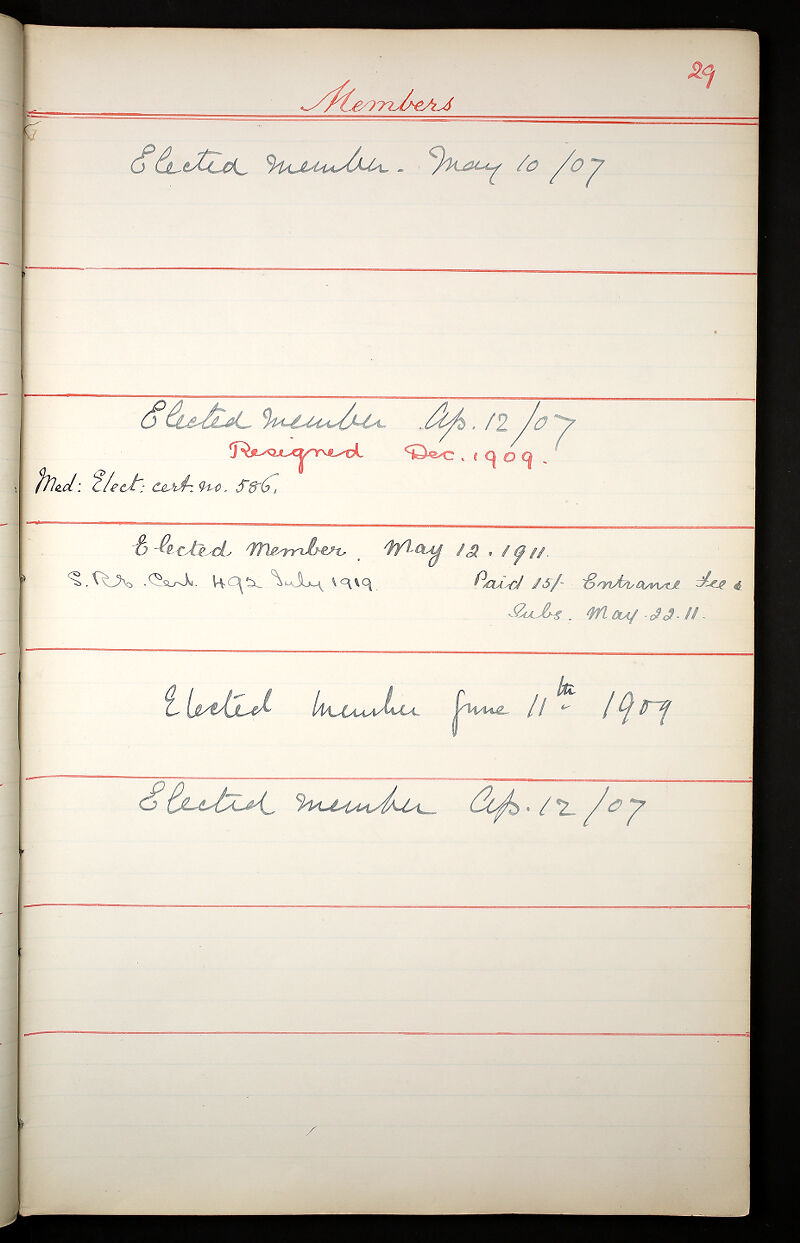 29
Members
Elected member. May 10/07
Elected member Ap. 12/07
Resigned Dec. 1909.
Med: Elect: cert: no. 586.
Elected Member. May 12. 1911.
Cert. 492 July 1919. Paid 15/- Entrance Fee &
Subs. May. 22. 11.
Elected member June 11th 1909
Elected member Ap. 12/07